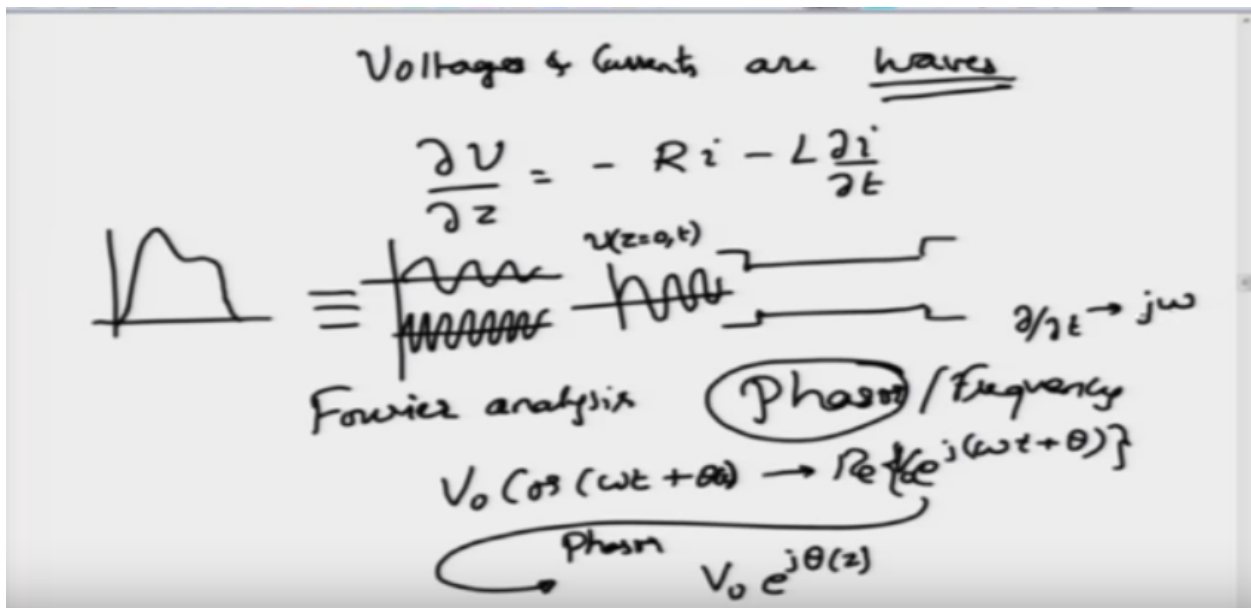 Voltages & Currents are waves
∂v/∂z = - Ri - L ∂i/∂t
v(z=0,t)
≡
∂/∂t → jω
Fourier analysis Phasor / Frequency
V₀ Cos (ωt + θ) → Re{V₀e^{j(ωt+θ)}}
Phasor V₀ e^{jθ(z)}